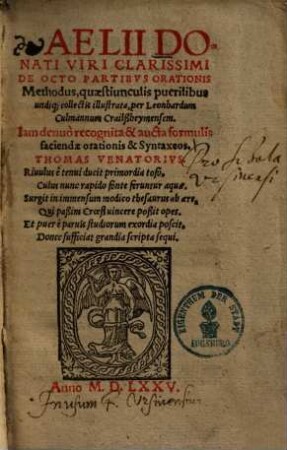 AELII DO-
NATI VIRI CLARISSIMI
DE OCTO PARTIBVS ORATIONIS
Methodus, quæstiunculis puerilibus
undiq; collectis illustrata, per Leonhardum
Culmannum Crailsheymensem.
Iam denuo recognita & aucta formulis
faciendæ orationis & Syntaxeos.
THOMAS VENATORIVS.
Riuulus è tenui ducit primordia tofo,
Cuius nunc rapido fonte feruntur aquæ.
Surgit in immensum modico thesaurus ab ære,
Qui passim Crœsi uincere possit opes.
Et puer è paruis studiorum exordia poscit,
Donec sufficiat grandia scripta sequi.
Pro Schola
Ursinensi
EIGENTHUM DER STADT
AUGSBURG.
Anno M. D. LXXV.